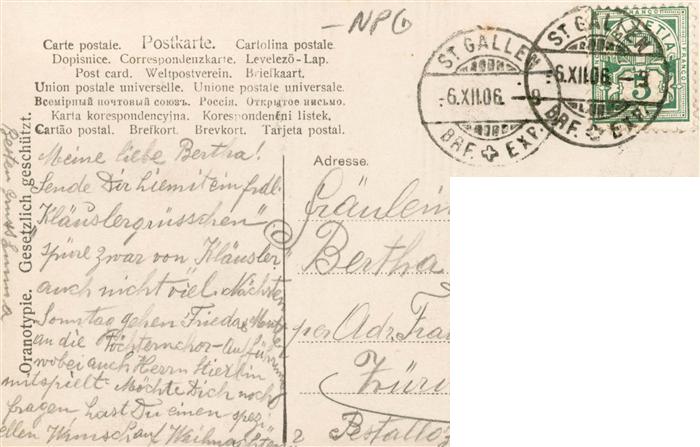 -NPG
Carte postale. Postkarte. Cartolina postale.
Dopisnice. Correspondenzkarte. Levelező-Lap.
Post card. Weltpostverein. Briefkaart.
Union postale universelle. Unione postale universale.
Всемірный почтовый союзъ. Россія. Открытое письмо.
Karta korespondencyjna. Korespondenční listek,
Cartão postal. Brefkort. Brevkort. Tarjeta postal.
ST GALLEN
-6.XII.06. -8
BRF. EXP.
ST GALLEN
-6.XII.06. -8
BRF. EXP.
HELVETIA
FRANCO
5
Oranotypie. Gesetzlich geschützt.
Meine liebe Bertha!
Sende Dir hiemit ein frdl.
"Kläuslergrüsschen"
spüre zwar von Kläusler
auch nicht viel. Nächsten
Sonntag gehen Frieda &
an die Töchternchor-Aufführung
wobei auch Herrn
mitspielt. Möchte Dich noch
fragen hast Du einen spezi-
ellen Wunsch auf Weihnachten
Adresse.
Fräulein
Bertha
per Adr. Frau
Züri
Pestaloz
2